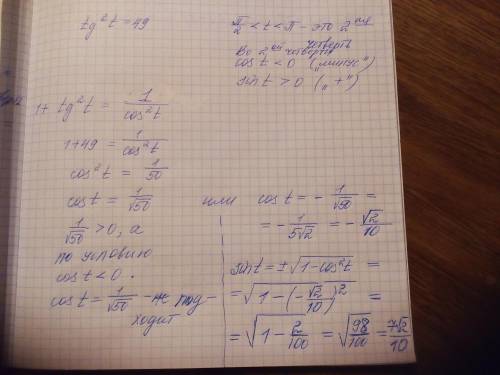 tg²t = 49
π/2 < t < π - это 2ая
четверть
Во 2ой четверти
cos t < 0 („минус")
sin t > 0 („+")
1 + tg²t = 1/cos²t
1+49 = 1/cos²t
cos²t = 1/50
cos t = 1/√50
1/√50 > 0, а
по условию
cos t < 0.
cos t = 1/√50 - не под-
ходит
или cos t = - 1/√50 =
= - 1/5√2 = - √2/10
sin t = ±√(1-cos²t) =
= √(1 - (-√2/10)²) =
= √(1 - 2/100) = √(98/100) = 7√2/10